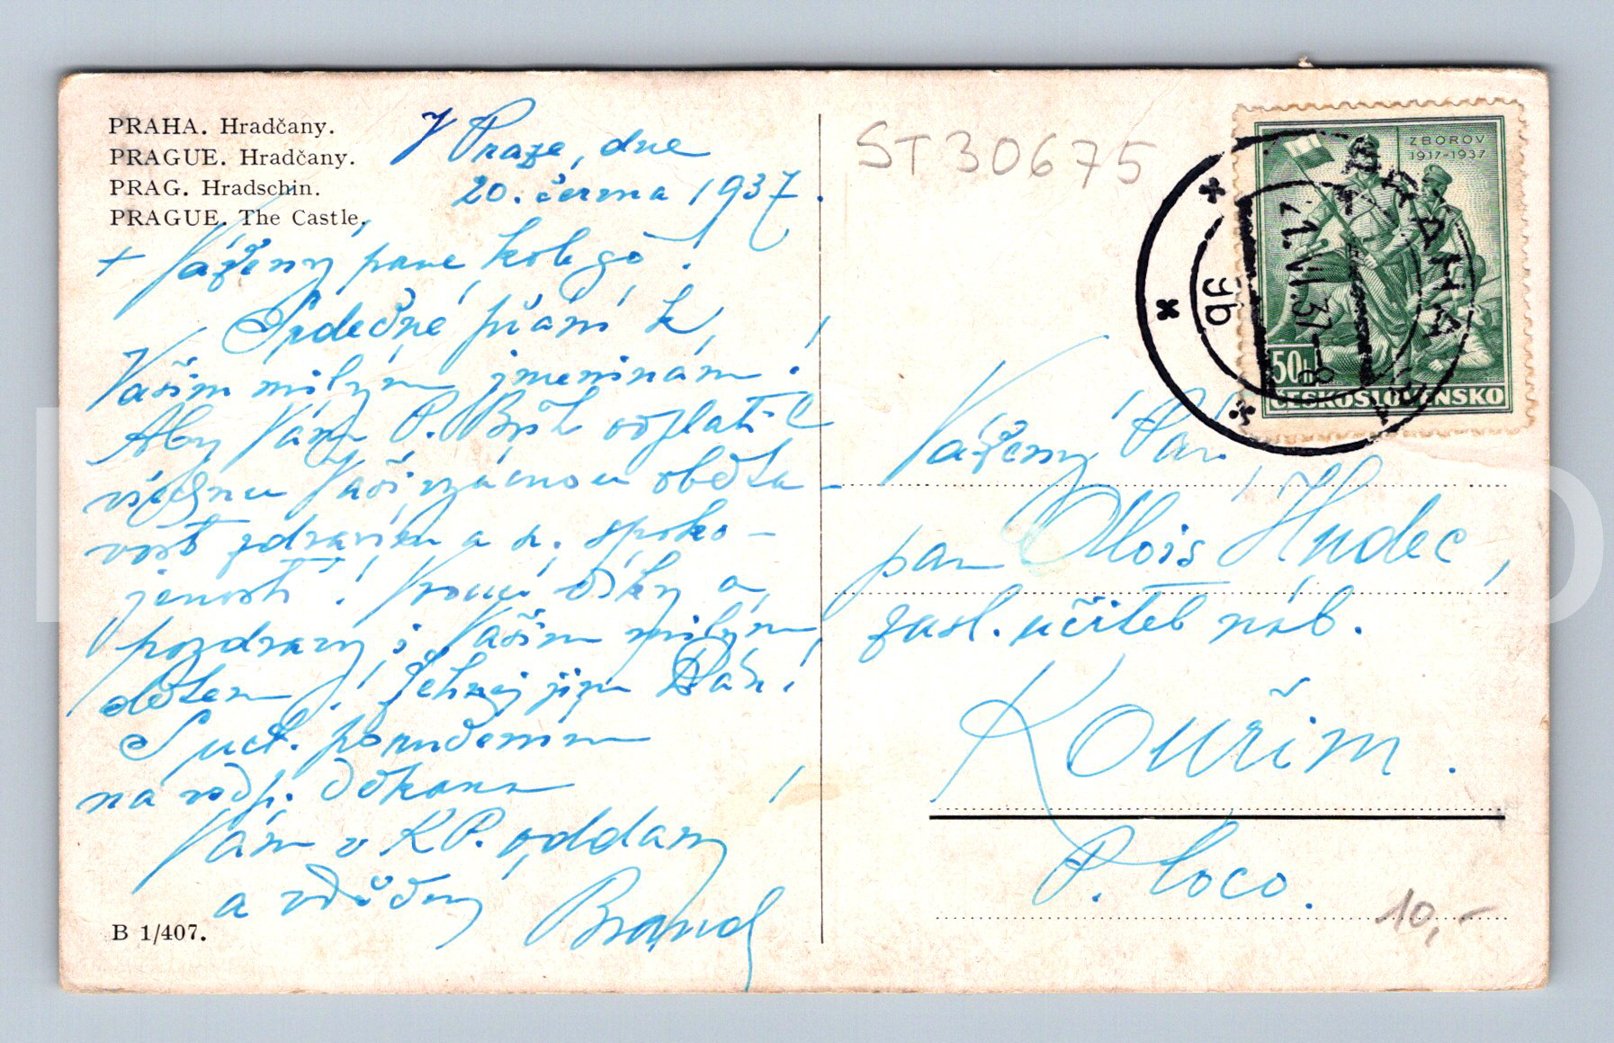 PRAHA. Hradčany.
PRAGUE. Hradčany.
PRAG. Hradschin.
PRAGUE. The Castle.
V Praze, dne
20. června 1937.
+ Vážený pane kolego!
Srdečné přání k
Vašim milým jmeninám!
Aby Vám P. Bůh odplatil
všechnu Vaši vzácnou oběta-
vost zdravím a d. spoko-
jeností! Vroucí díky a
pozdravy i Vašim milým
dětem! Žehnej jim Bůh!
S uct. poručením
na vdp. děkana
Vám v K P. oddaný
a vděčný Brand
B 1/407.
ST30675
ZBOROV
1917-1937
50h
ČESKOSLOVENSKO
PRAHA
21.VI.37-8
9b
Vážený Pan,
pan Alois Hudec,
zasl. učitel náb.
Kouřim.
P. loco.
10,-